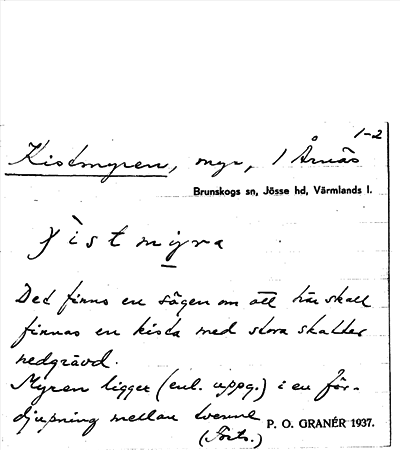 1-2
Kistmyren, myr, 1 Årnäs
Brunskogs sn, Jösse hd, Värmlands l.
истmyra
Det finns en sägen om att här skall
finnas en kista med stora skatter
nedgrävd.
Myren ligger (enl. uppg.) i en för-
djupning mellan tvenne
(Forts.)
P. O. GRANÉR 1937.